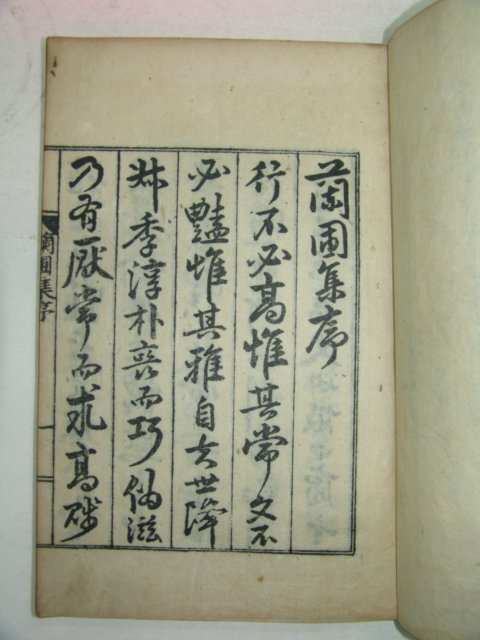 蘭圃集序
行不必高惟其常文不
必豔惟其雅自夫世降
叔季淳朴喪而巧僞滋
乃有厭常而求高騁
蘭圃集序